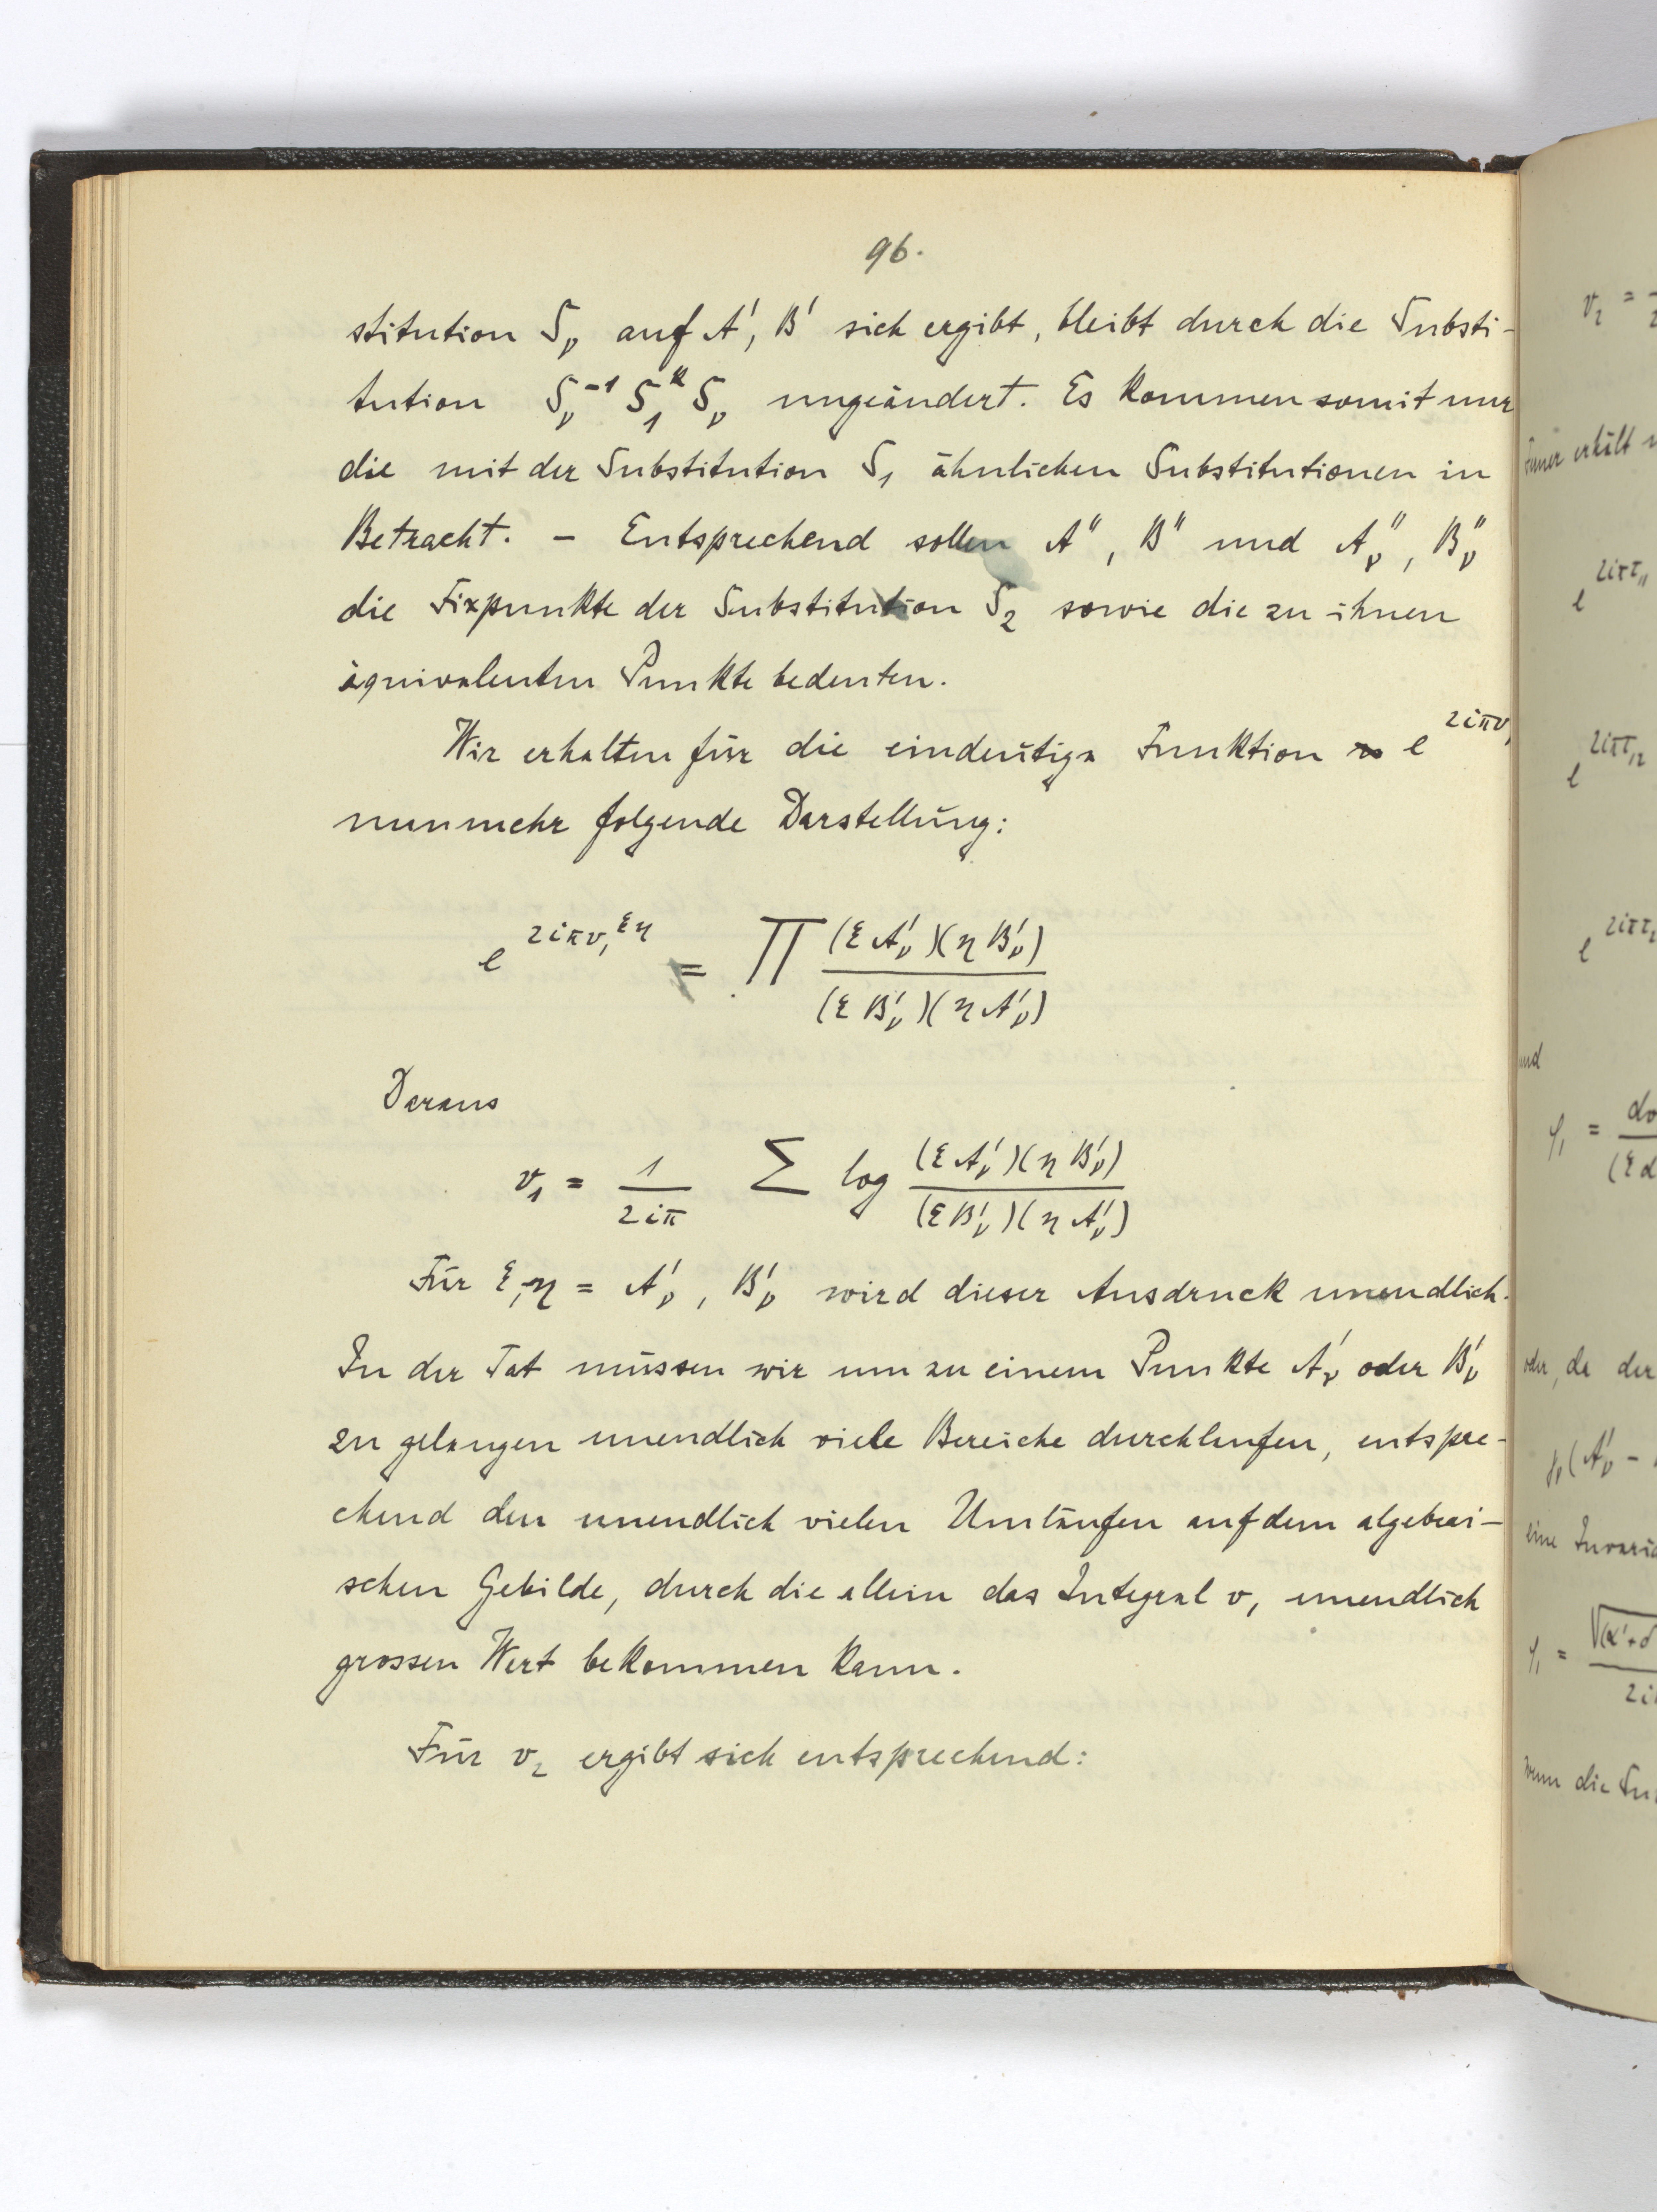 96.
stitution S_ν auf A', B' sich ergibt, bleibt durch die Substi-
tution S_ν^{-1} S_1^k S_ν ungeändert. Es kommen somit nur
die mit der Substitution S_1 ähnlichen Substitutionen in
Betracht. – Entsprechend sollen A'', B'' und A''_ν, B''_ν
die Fixpunkte der Substitution S_2 sowie die zu ihnen
äquivalenten Punkte bedeuten.
Wir erhalten für die eindeutige Funktion e^{2iπv_1}
nunmehr folgende Darstellung:
e^{2iπv_1^{ξη}} = ∏ \frac{(ξA'_ν)(ηB'_ν)}{(ξB'_ν)(ηA'_ν)}
Daraus
v_1 = \frac{1}{2iπ} ∑ log \frac{(ξA'_ν)(ηB'_ν)}{(ξB'_ν)(ηA'_ν)}
Für ξ, η = A'_ν, B'_ν wird dieser Ausdruck unendlich.
In der Tat müssen wir um zu einem Punkte A'_ν oder B'_ν
zu gelangen unendlich viele Bereiche durchlaufen, entspre-
chend den unendlich vielen Umläufen auf dem algebrai-
schen Gebilde, durch die allein das Integral v_1 unendlich
grossen Wert bekommen kann.
Für v_2 ergibt sich entsprechend:
v_2 =
erhält
e^{2iπτ_{11}}
e^{2iπτ_{12}}
und
φ_1 =
oder, da der
eine
φ_1 =
wenn die